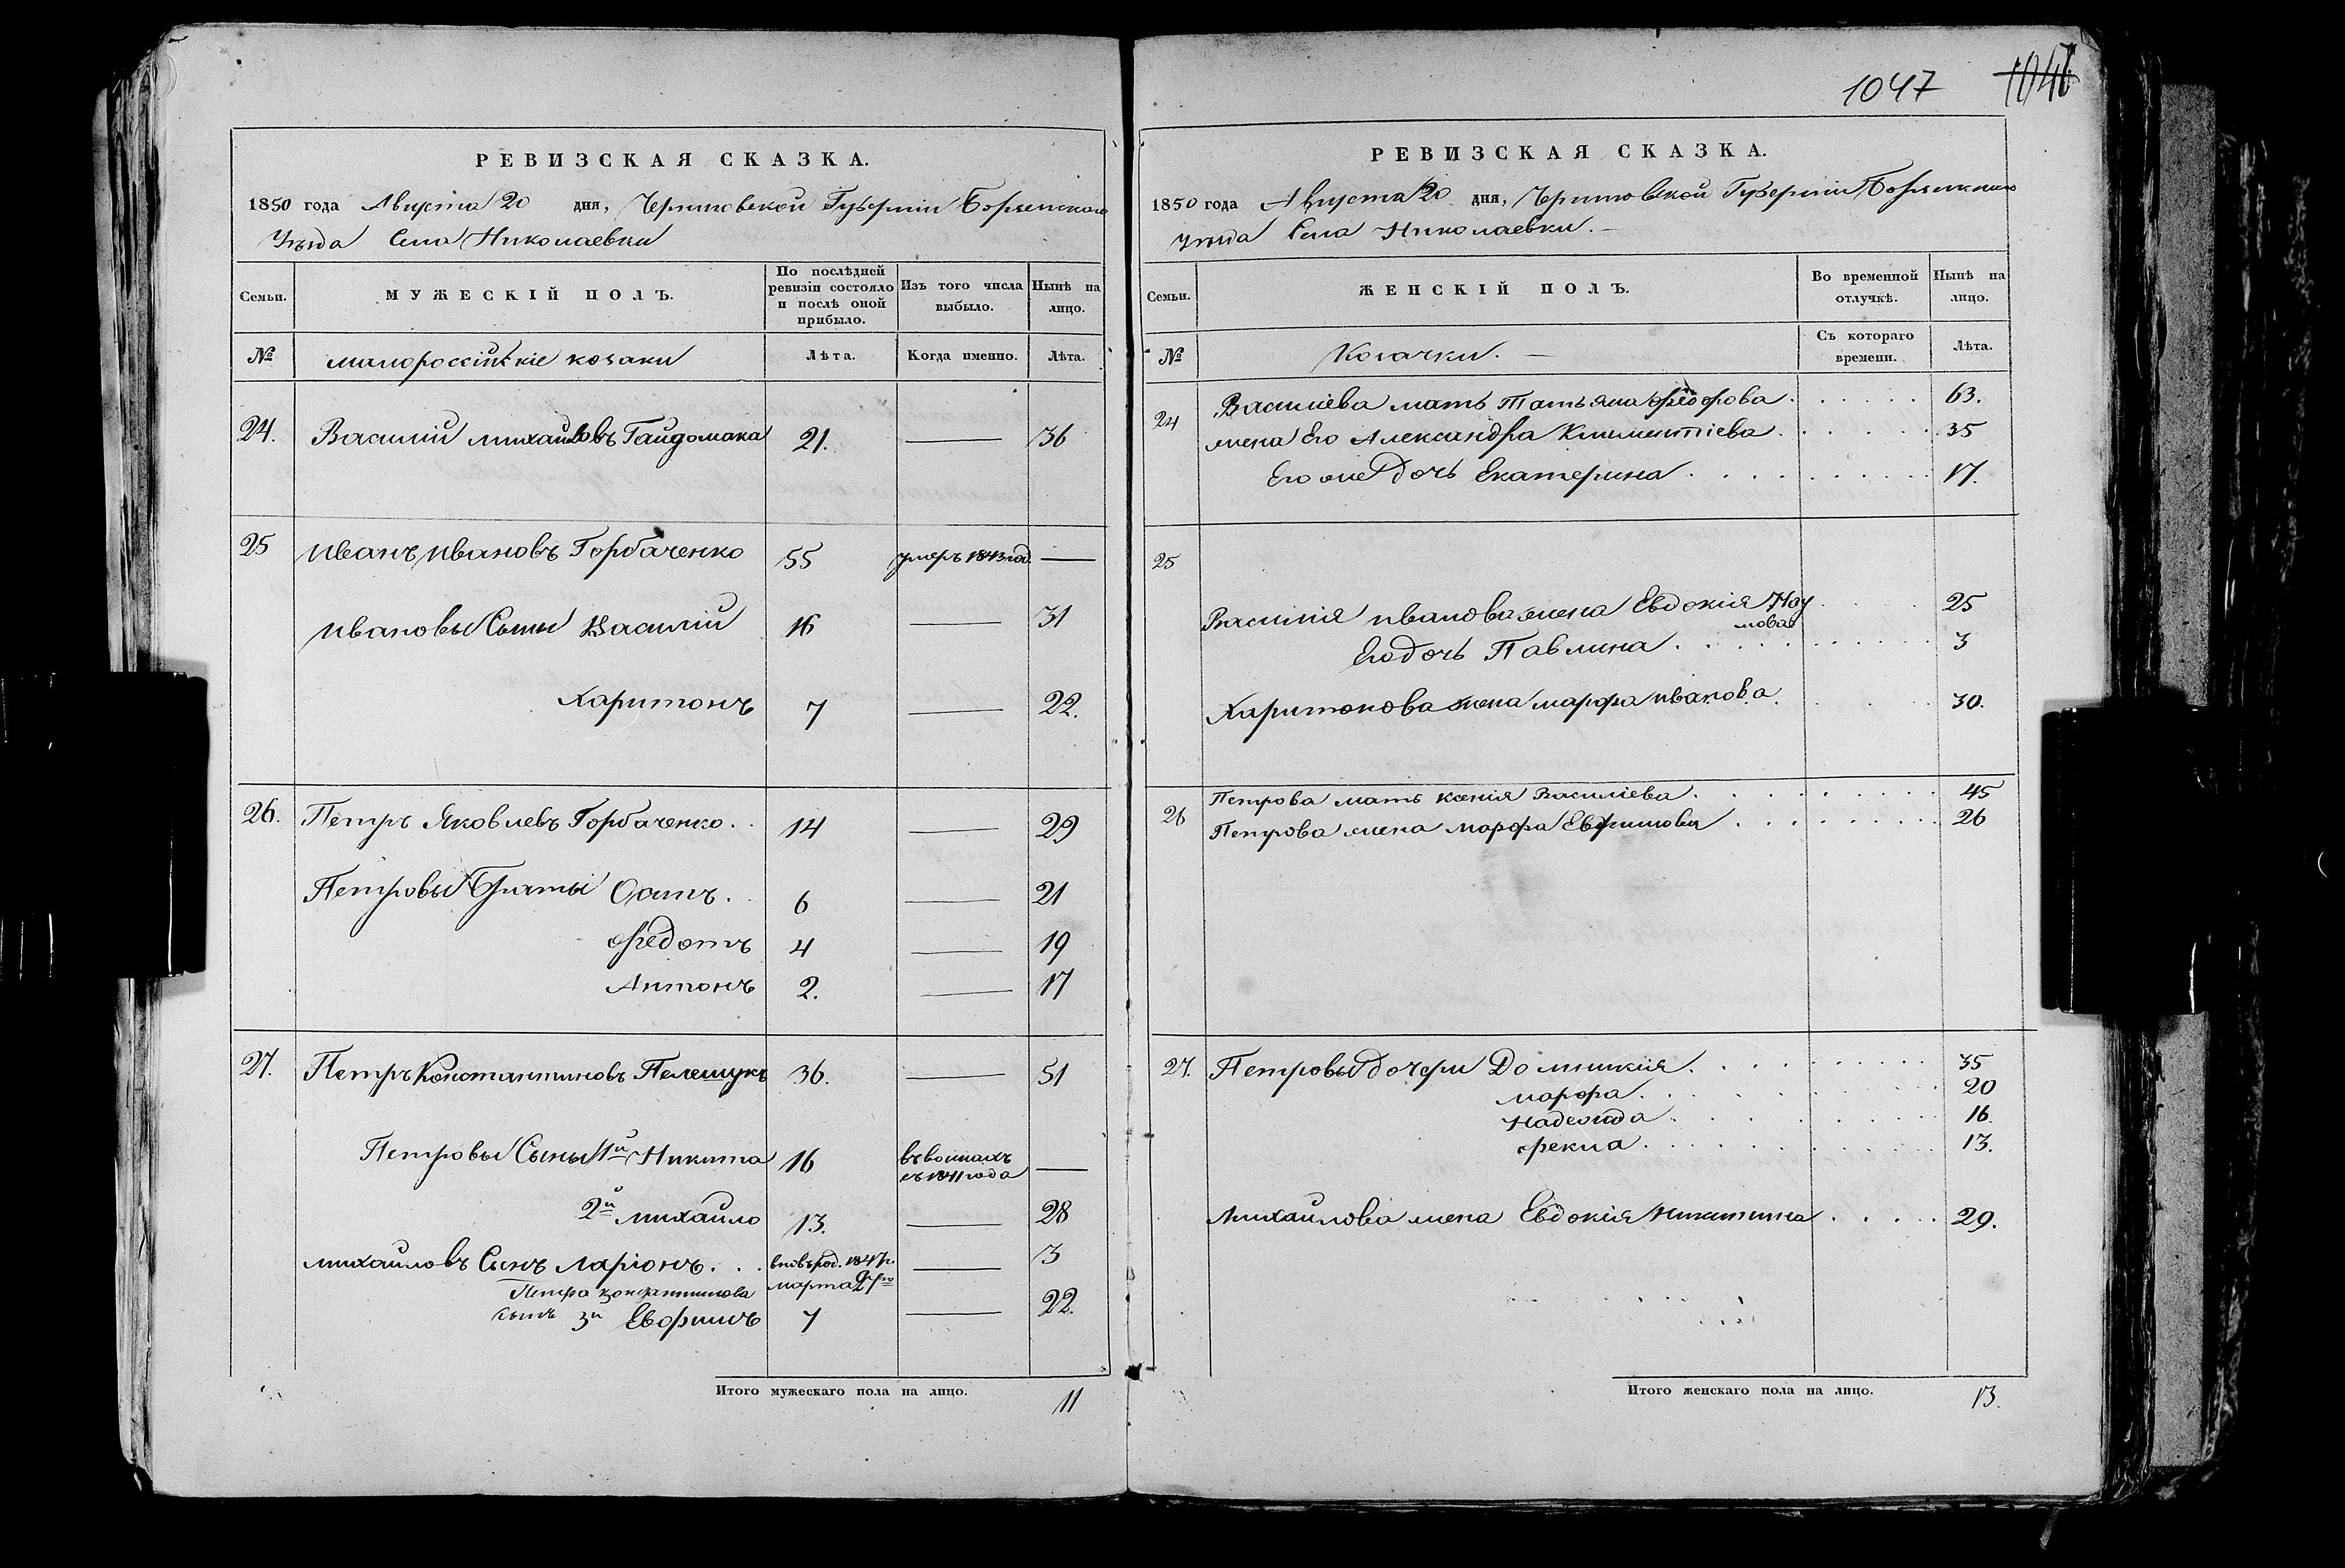 1047 1046
РЕВИЗСКАЯ СКАЗКА.
1850 года Августа 20 дня, Черниговской Губернии Борзенского
Уѣзда Села Николаевки
Семьи. МУЖЕСКІЙ ПОЛЪ. По послѣдней ревизіи состояло и послѣ оной прибыло. Изъ того числа выбыло. Нынѣ на лицо.
№ малороссійскіе козаки Лѣта. Когда именно. Лѣта.
24. Василій михайловъ Гайдомака 21. — 36
25 Иванъ Ивановъ Горбаченко 55 умеръ 1843 год. —
Ивановы Сыны Василій 16 — 31
Харитонъ 7 — 22.
26. Петръ Яковлевъ Горбаченко. 14 — 29
Петровы Братьі Осипъ. 6 — 21
Федотъ 4 — 19
Антонъ 2. — 17
27. Петръ Константиновъ Пелешукъ 36. — 51
Петровы Сыны 1й Никита 16 въ воинахъ съ 1841 года —
2й михайло 13. — 28
михайловъ Сынъ Ларіонъ. вновь род. 1847 г. марта — 3
Петра Константинова
сынъ 3й Евфимъ 7 — 22.
Итого мужескаго пола на лицо. 11
РЕВИЗСКАЯ СКАЗКА.
1850 года Августа 20 дня, Черниговской Губерніи Борзенскаго
Уѣзда Села Николаевки. —
Семьи. ЖЕНСКІЙ ПОЛЪ. Во временной отлучкѣ. Нынѣ на лицо.
№ Козачки. — Съ котораго времени. Лѣта.
24 Василіева мать Татьяна Федорова 63.
жена Его Александра Климентіева 35
Его же дочь Екатерина 17.
25
Василія иванова жена Евдокія Нау
мова 25
Его дочь Павлина 3
Харитонова жена марфа иванова 30.
26 Петрова мать Ксенія Василіева 45
Петрова жена марфа Евфимова 26
27. Петровы дочери Домникія 35
марфа 20
надежда 16.
фекла 13.
Михайлова жена Евдокія Никитина 29.
Итого женскаго пола на лицо. 13.